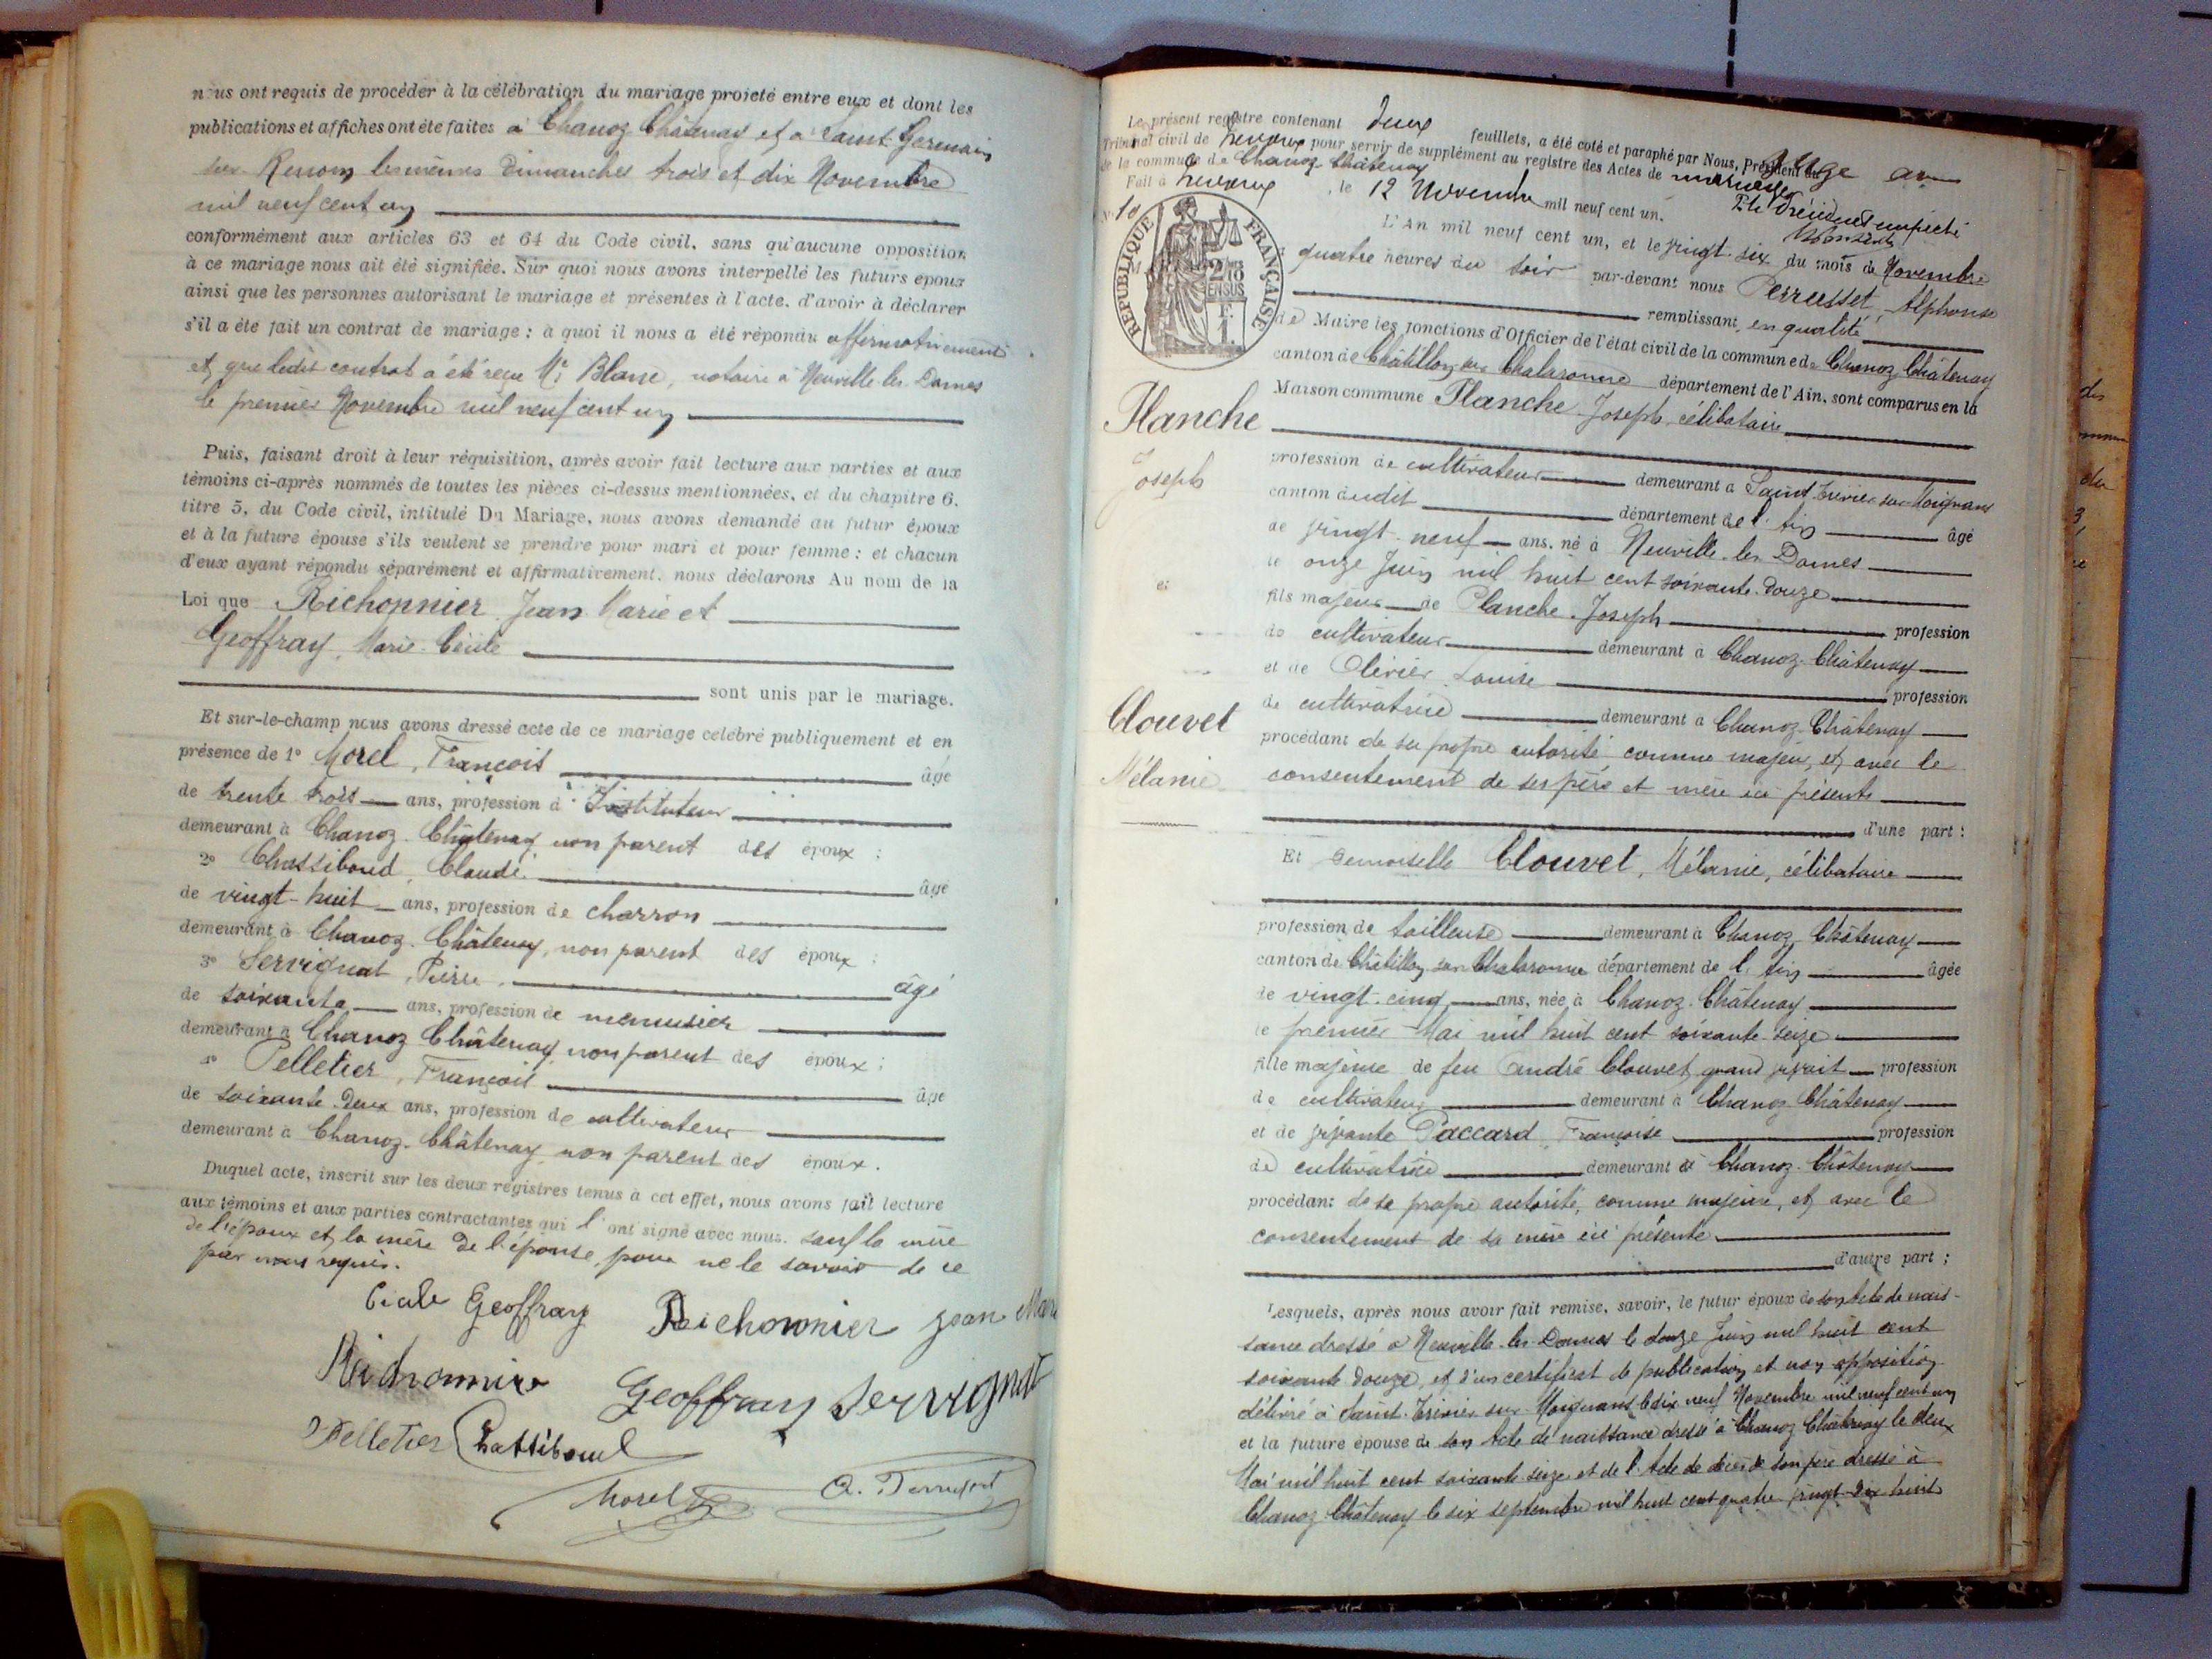 nous ont requis de procéder à la célébration du mariage projeté entre eux et dont les
publications et affiches ont été faites à Chanoz-Châtenay et à Saint-Germain
sur-Renon les mêmes Dimanches trois et dix Novembre
mil neuf cent un
conformément aux articles 63 et 64 du Code civil, sans qu'aucune opposition
à ce mariage nous ait été signifiée. Sur quoi nous avons interpellé les futurs époux
ainsi que les personnes autorisant le mariage et présentes à l'acte, d'avoir à déclarer
s'il a été fait un contrat de mariage : à quoi il nous a été répondu affirmativement
et que ledit contrat a été reçu Me Blanc, notaire à Neuville-les-Dames
le premier Novembre mil neuf cent un
Puis, faisant droit à leur réquisition, après avoir fait lecture aux parties et aux
témoins ci-après nommés de toutes les pièces ci-dessus mentionnées, et du chapitre 6,
titre 5, du Code civil, intitulé Du Mariage, nous avons demandé au futur époux
et à la future épouse s'ils veulent se prendre pour mari et pour femme : et chacun
d'eux ayant répondu séparément et affirmativement, nous déclarons Au nom de la
Loi que Richonnier Jean Marie et
Geoffray, Marie-Cécile
sont unis par le mariage.
Et sur-le-champ nous avons dressé acte de ce mariage célébré publiquement et en
présence de 1° Morel, François âgé
de trente trois ans, profession d'Instituteur
demeurant à Chanoz-Châtenay non parent des époux :
2° Chassiboud, Claude âgé
de vingt-huit ans, profession de charron
demeurant à Chanoz-Châtenay, non parent des époux :
3° Servignat, Pierre, âgé
de soixante ans, profession de menuisier
demeurant à Chanoz Châtenay non parent des époux :
4° Pelletier, François âgé
de soixante-deux ans, profession de cultivateur
demeurant à Chanoz-Châtenay non parent des époux.
Duquel acte, inscrit sur les deux registres tenus à cet effet, nous avons fait lecture
aux témoins et aux parties contractantes qui l'ont signé avec nous. sauf la mère
de l'époux et la mère de l'épouse, pour ne le savoir de ce
par nous requis.
Cécile Geoffray Richonnier Jean Marie
Richonnier Geoffray Servignat
Pelletier Chassiboud
Morel A. Perrusset
Le présent registre contenant deux feuillets, a été coté et paraphé par Nous, Président du Juge au
Tribunal civil de Trévoux pour servir de supplément au registre des Actes de mariage
de la commune de Chanoz-Châtenay
Fait à Trévoux, le 12 Novembre mil neuf cent un. Pr le Président empêché
N° 10
RÉPUBLIQUE FRANÇAISE
2/10 EN SUS
F. 1.
L'An mil neuf cent un, et le vingt-six du mois de Novembre
à quatre heures du soir par-devant nous Perrusset, Alphonse
remplissant, en qualité
de Maire les fonctions d'Officier de l'état civil de la commune de Chanoz-Châtenay
canton de Châtillon-sur-Chalaronne département de l'Ain, sont comparus en la
Maison commune Planche Joseph, célibataire
Planche
Joseph
profession de cultivateur demeurant à Saint-Trivier-sur-Moignans
canton dudit département de l'Ain âgé
de vingt-neuf ans, né à Neuville-les-Dames
le onze Juin mil huit cent soixante-douze
et
fils majeur de Planche Joseph profession
de cultivateur demeurant à Chanoz-Châtenay
et de Olivier Louise profession
de cultivatrice demeurant à Chanoz-Châtenay
Clouvet
Mélanie
procédant de sa propre autorité comme majeur, et avec le
consentement de ses père et mère ici présents
d'une part :
Et demoiselle Clouvet, Mélanie, célibataire
profession de tailleuse demeurant à Chanoz-Châtenay
canton de Châtillon-sur-Chalaronne département de l'Ain âgée
de vingt-cinq ans, née à Chanoz-Châtenay
le premier Mai mil huit cent soixante-seize
fille majeure de feu André Clouvet, quand vivait profession
de cultivateur demeurant à Chanoz-Châtenay
et de vivante Paccard Françoise profession
de cultivatrice demeurant à Chanoz-Châtenay
procédant de sa propre autorité, comme majeure, et avec le
consentement de sa mère ici présente
d'autre part ;
Lesquels, après nous avoir fait remise, savoir, le futur époux de son Acte de nais-
sance dressé à Neuville-les-Dames le douze Juin mil huit cent
soixante douze, et d'un certificat de publication et non opposition
délivré à Saint-Trivier-sur-Moignans le dix neuf Novembre mil neuf cent un
et la future épouse de son Acte de naissance dressé à Chanoz Châtenay le deux
Mai mil huit cent soixante-seize et de l'Acte de décès de son père dressé à
Chanoz Châtenay le six septembre mil huit cent quatre vingt-dix huit